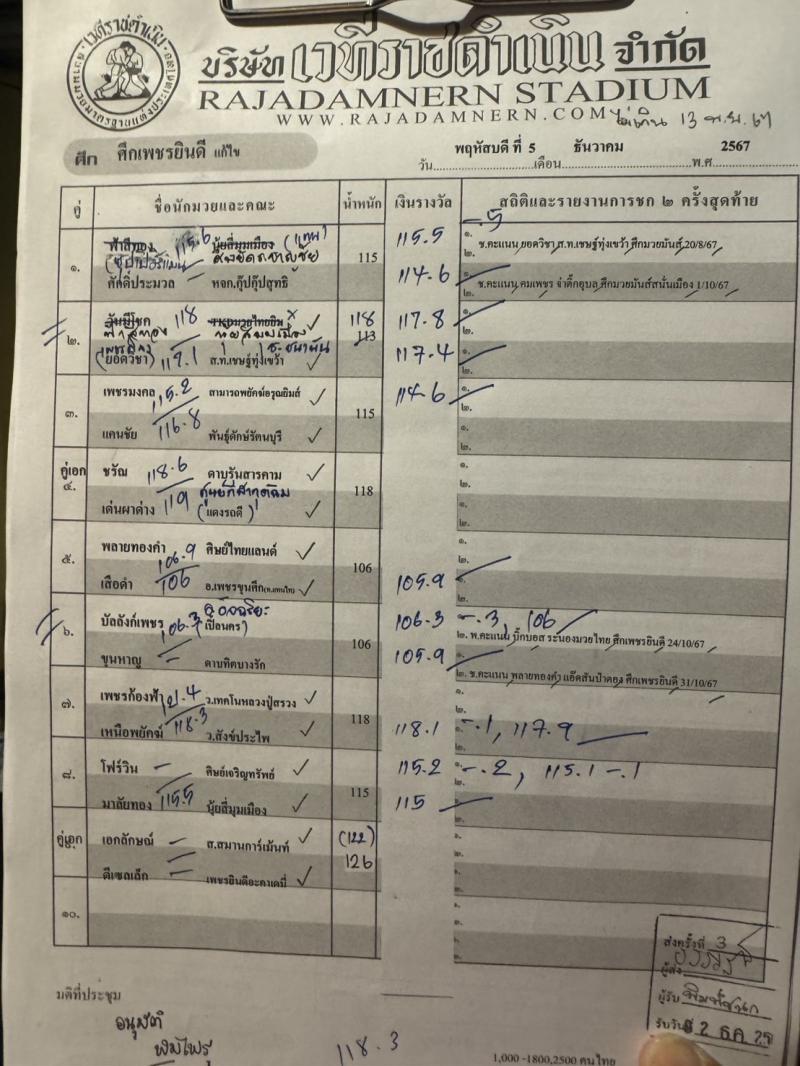 บริษัท เวทีราชดำเนิน จำกัด
RAJADAMNERN STADIUM
WWW.RAJADAMNERN.COM
ไม่เกิน 13 พ.ย. 67
ศึก ศึกเพชรยินดี แก้ไข
วัน พฤหัสบดี ที่ 5 เดือน ธันวาคม พ.ศ 2567
คู่ ชื่อนักมวยและคณะ น้ำหนัก เงินรางวัล สถิติและรายงานการชก ๒ ครั้งสุดท้าย
๑. ฟ้าสีทอง 115.6 นุ้ยสี่มุมเมือง 115 115.5 ๑. -.5
๒. ช.คะแนน ยอดวิชา ส.ท.เชษฐ์ทุ่งเขว้า ศึกมวยมันส์ 20/8/67
ศักดิ์ประมวล หจก.กุ๊ปกุ๊ปสุทธิ์ 114.6 ๑.
๒. ช.คะแนน คมเพชร จ่าตึ๊กอุบล ศึกมวยมันส์สนั่นเมือง 1/10/67
๒. 118 TKDมวยไทยยิม 118 113 117.8 ๑.
๒.
ฟ้าสีทอง นุ้ยสี่มุมเมือง
(ยอดวิชา) 119.1 ส.ท.เชษฐ์ทุ่งเขว้า 117.4 ๑.
๒.
๓. เพชรมงคล 115.2 สามารถพยัคฆ์อรุณยิมส์ 115 114.6 ๑.
๒.
แคนชัย 116.8 พันธุ์ดักษ์รัตนบุรี ๑.
๒.
คู่เอก ๔. ชรัณ 118.6 ดาบรันสารคาม 118 ๑.
๒.
เด่นผาด่าง 119 (แดงรถดี) ๑.
๒.
๕. พลายทองคำ 106.9 ศิษย์ไทยแลนด์ 106 ๑.
๒.
เสือดำ 106 อ.เพชรขุนศึก 105.9 ๑.
๒.
๖. บัลลังก์เพชร 106.3 (เปิลนคร) 106 106.3 -.3, 106
๒. พ.คะแนน บิ๊กบอส ระนองมวยไทย ศึกเพชรยินดี 24/10/67
ขุนหาญ ดาบทิตบางรัก 105.9 ๑.
๒. ช.คะแนน พลายทองคำ แอ๊ดสันป่าตอง ศึกเพชรยินดี 31/10/67
๗. เพชรก้องฟ้า ว.เทคโนหลวงปู่สรวง 118 ๑.
๒.
เหนือพยัคฆ์ 118.3 ว.สังข์ประไพ 118.1 -.1, 117.9
๒.
๘. โฟร์วิน ศิษย์เจริญทรัพย์ 115 115.2 -.2, 115.1 -.1
๒.
มาลัยทอง 115.5 นุ้ยสี่มุมเมือง 115 ๑.
๒.
คู่เอก เอกลักษณ์ ส.สมานการ์เม้นท์ (122) 126
ดีเซลเล็ก เพชรยินดีอะคาเดมี่
๑๐.
มติที่ประชุม
อนุมัติ
118.3
ส่งครั้งที่ 3
ผู้ส่ง
ผู้รับ พิมพ์ชนก
รับวันที่ 2 ธ.ค.
1,000 -1800,2500 คนไทย